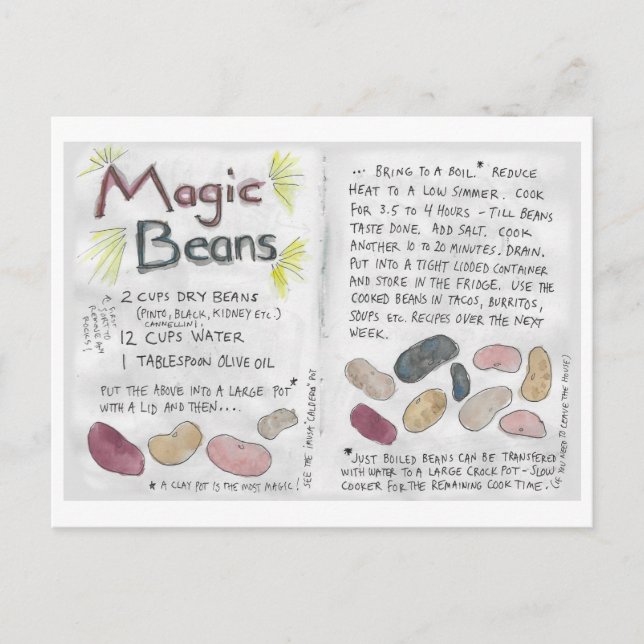 Magic
Beans
2 CUPS DRY BEANS
(PINTO, BLACK, KIDNEY ETC.)
CANNELLINI,
12 CUPS WATER
1 TABLESPOON OLIVE OIL
* FIRST
SORT TO
REMOVE ANY
ROCKS!
PUT THE ABOVE INTO A LARGE POT*
WITH A LID AND THEN....
* A CLAY POT IS THE MOST MAGIC!
SEE THE IMUSA "CALDERO" POT
... BRING TO A BOIL.* REDUCE
HEAT TO A LOW SIMMER. COOK
FOR 3.5 TO 4 HOURS - TILL BEANS
TASTE DONE. ADD SALT. COOK
ANOTHER 10 TO 20 MINUTES. DRAIN.
PUT INTO A TIGHT LIDDED CONTAINER
AND STORE IN THE FRIDGE. USE THE
COOKED BEANS IN TACOS, BURRITOS,
SOUPS ETC. RECIPES OVER THE NEXT
WEEK.
*JUST BOILED BEANS CAN BE TRANSFERED
WITH WATER TO A LARGE CROCK POT - SLOW
COOKER FOR THE REMAINING COOK TIME.
(IF YOU NEED TO LEAVE THE HOUSE)